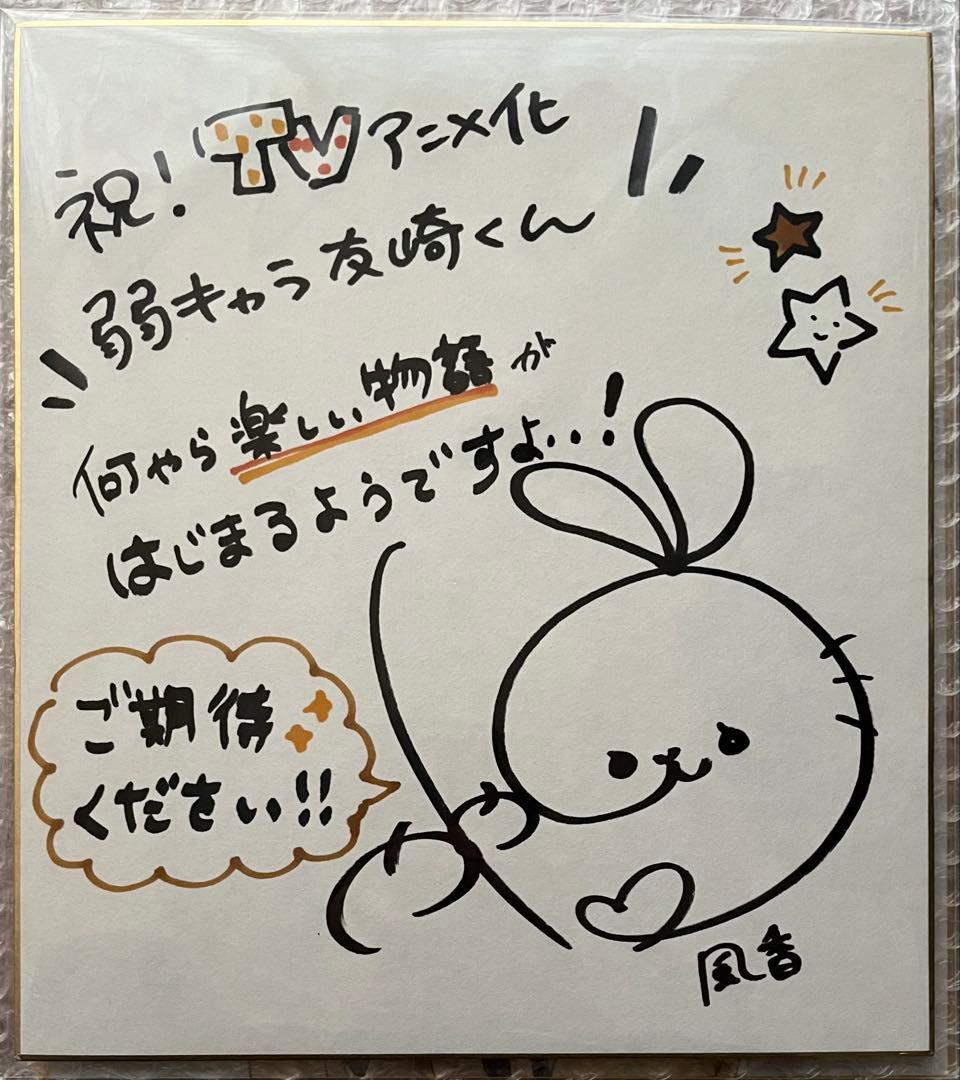 祝! TVアニメ化
弱キャラ友崎くん
何やら楽しい物語が
はじまるようですよ..!
ご期待
ください!!
風香